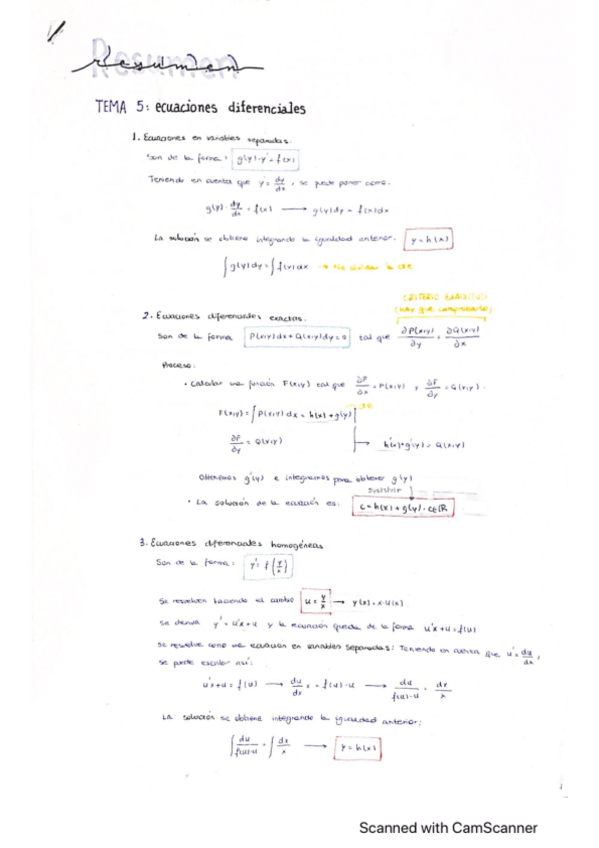 Resumen
TEMA 5: ecuaciones diferenciales
1. Ecuaciones en variables separadas:
Son de la forma: g(y)·y' = f(x)
Teniendo en cuenta que y' = dy/dx, se puede poner como:
g(y)· dy/dx = f(x) → g(y)dy = f(x)dx
La solución se obtiene integrando la igualdad anterior. y = h(x)
∫g(y)dy = ∫f(x)dx → No olvidar la CTE
CRITERIO EXACTITUD
(hay que comprobarlo)
2. Ecuaciones diferenciales exactas:
Son de la forma P(x,y)dx + Q(x,y)dy = 0 tal que ∂P(x,y)/∂y = ∂Q(x,y)/∂x
Proceso:
• Calcular una función F(x,y) tal que ∂F/∂x = P(x,y) y ∂F/∂y = Q(x,y).
F(x,y) = ∫P(x,y) dx = h(x) + g(y)
∂F/∂y = Q(x,y) → h'(x)+g'(y) = Q(x,y)
Obtenemos g'(y) e integramos para obtener g(y)
sustituir
• La solución de la ecuación es: C = h(x) + g(y), C∈ℝ
3. Ecuaciones diferenciales homogéneas
Son de la forma: y' = f(y/x)
Se resuelven haciendo el cambio u = y/x → y(x) = x·u(x)
Se deriva y' = u'x + u y la ecuación queda de la forma u'x + u = f(u)
Se resuelve como una ecuación en variables separadas: Teniendo en cuenta que u' = du/dx,
se puede escribir así:
u'x + u = f(u) → du/dx x = f(u) - u → du/f(u)-u = dx/x
La solución se obtiene integrando la igualdad anterior:
∫ du/f(u)-u = ∫ dx/x → y = h(x)
Scanned with CamScanner